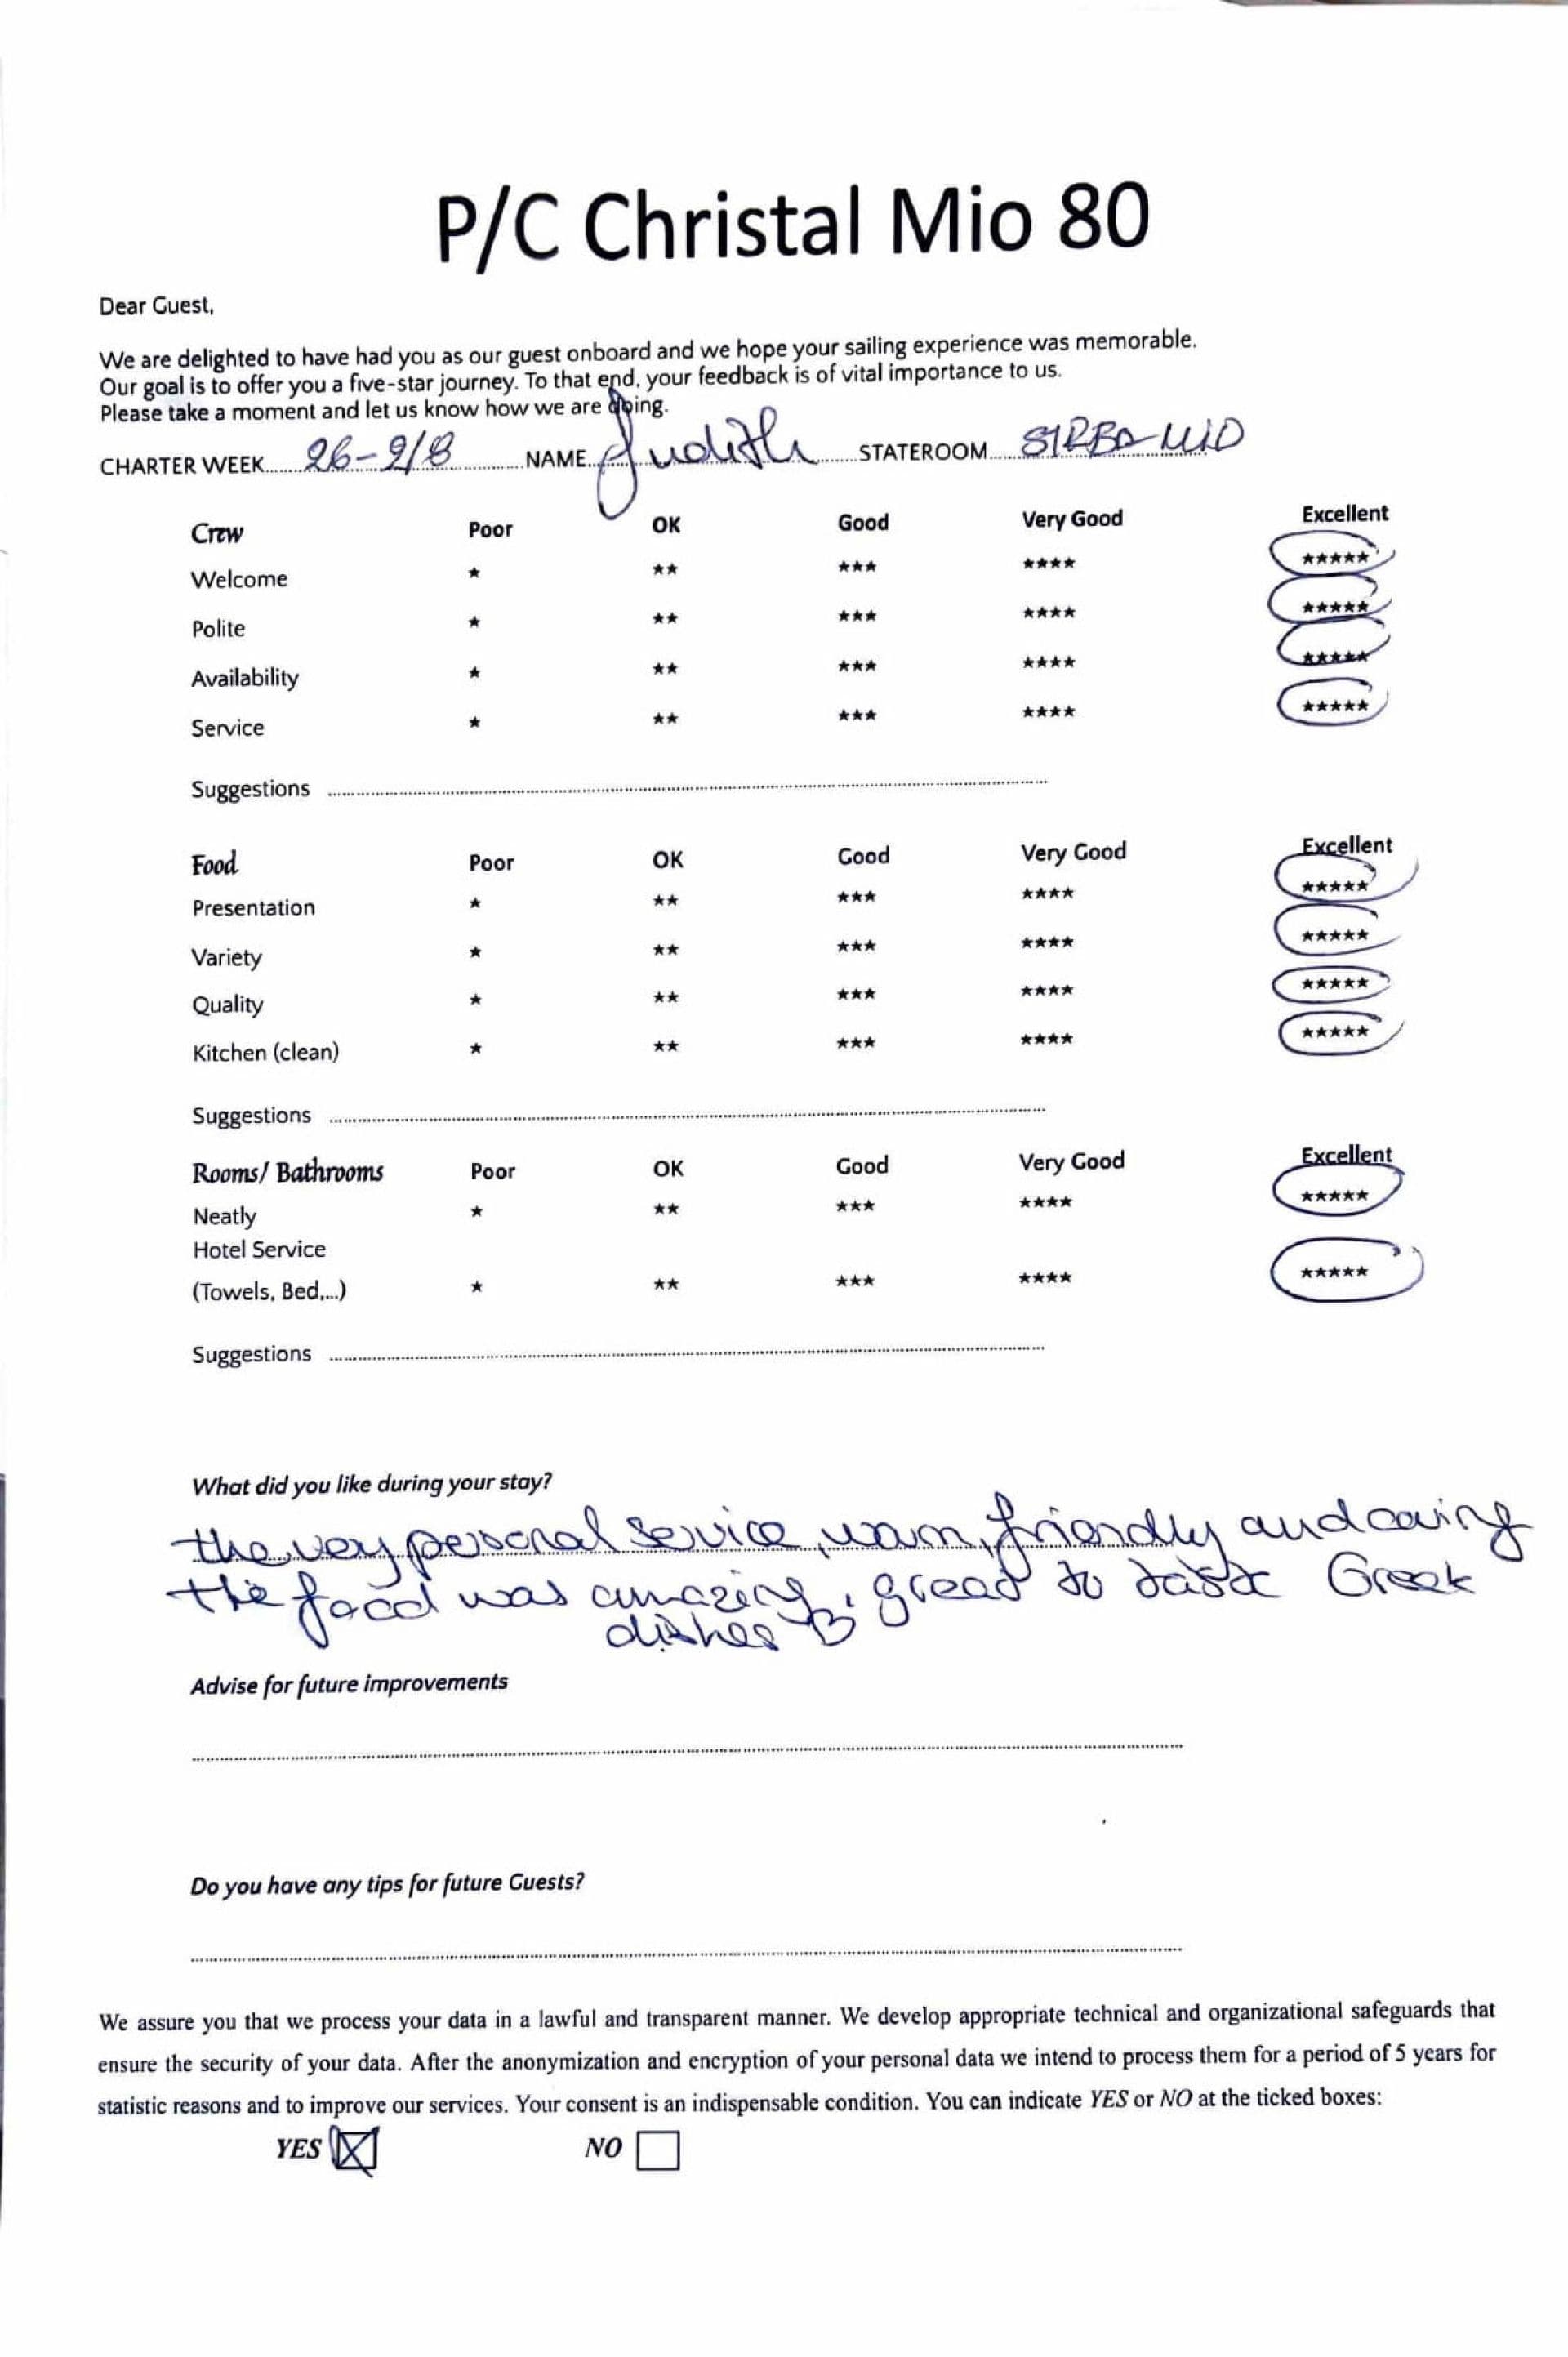 P/C Christal Mio 80
Dear Guest,
We are delighted to have had you as our guest onboard and we hope your sailing experience was memorable.
Our goal is to offer you a five-star journey. To that end, your feedback is of vital importance to us.
Please take a moment and let us know how we are doing.
CHARTER WEEK 26-2/8 NAME Judith STATEROOM
Crew Poor OK Good Very Good Excellent
Welcome ★ ★★ ★★★ ★★★★ ★★★★★
Polite ★ ★★ ★★★ ★★★★ ★★★★★
Availability ★ ★★ ★★★ ★★★★ ★★★★★
Service ★ ★★ ★★★ ★★★★ ★★★★★
Suggestions
Food Poor OK Good Very Good Excellent
Presentation ★ ★★ ★★★ ★★★★ ★★★★★
Variety ★ ★★ ★★★ ★★★★ ★★★★★
Quality ★ ★★ ★★★ ★★★★ ★★★★★
Kitchen (clean) ★ ★★ ★★★ ★★★★ ★★★★★
Suggestions
Rooms/ Bathrooms Poor OK Good Very Good Excellent
Neatly ★ ★★ ★★★ ★★★★ ★★★★★
Hotel Service
(Towels, Bed,...) ★ ★★ ★★★ ★★★★ ★★★★★
Suggestions
What did you like during your stay?
the very personal service, warm, friendly and caring
the food was amazing, great to taste Greek
dishes
Advise for future improvements
Do you have any tips for future Guests?
We assure you that we process your data in a lawful and transparent manner. We develop appropriate technical and organizational safeguards that
ensure the security of your data. After the anonymization and encryption of your personal data we intend to process them for a period of 5 years for
statistic reasons and to improve our services. Your consent is an indispensable condition. You can indicate YES or NO at the ticked boxes:
YES NO